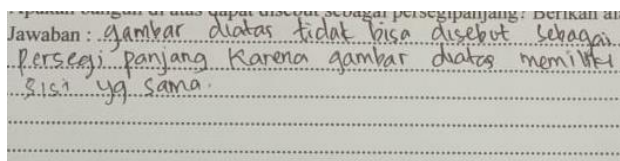 Apakah bangun di atas dapat disebut sebagai persegipanjang? Berikan
Jawaban : gambar diatas tidak bisa disebut sebagai
persegi panjang karena gambar diatas memiliki
sisi yg sama.